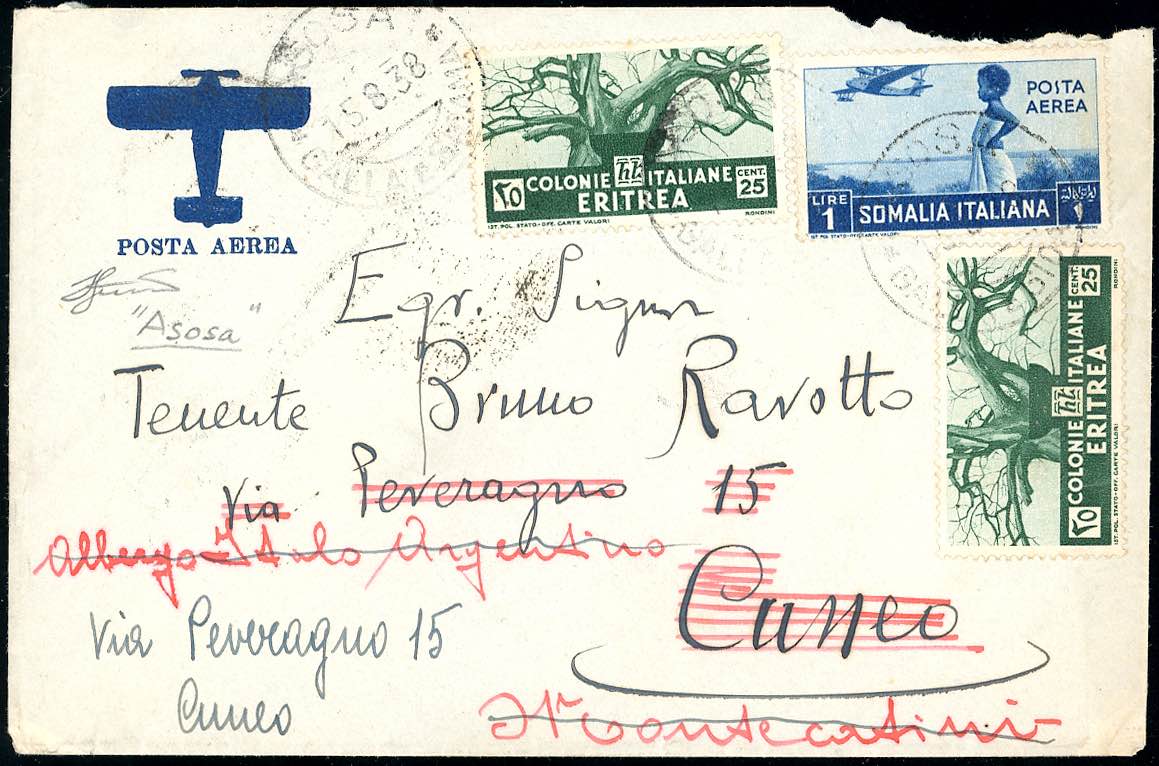 ASOSA
15.8.38
COLONIE ITALIANE
ERITREA
CENT. 25
٢٥
IST. POL. STATO-OFF. CARTE VALORI
RONDINI
POSTA
AEREA
LIRE
1
SOMALIA ITALIANA
١
IST. POL. STATO-OFF. CARTE VALORI
POSTA AEREA
"Asosa"
COLONIE ITALIANE
ERITREA
CENT. 25
٢٥
IST. POL. STATO-OFF. CARTE VALORI
RONDINI
Egr. Signor
Tenente Bruno Ravotto
Via Peveragno 15
Albergo Italo Argentino
Cuneo
Via Peveragno 15
Cuneo
Montecatini